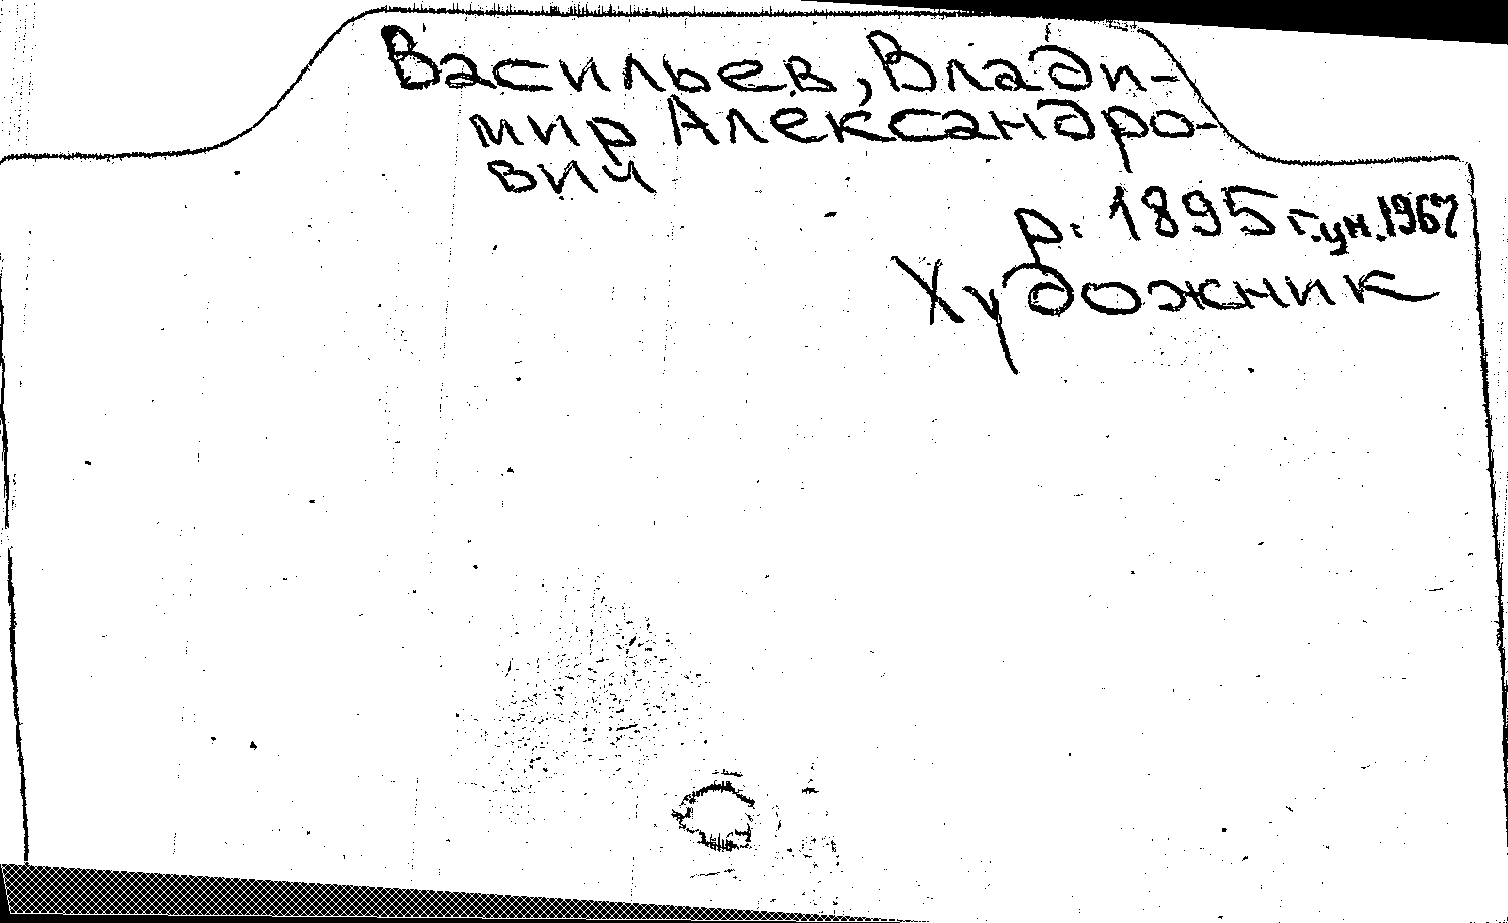 Васильев, Влади-
мир Александро-
вич
р. 1895 г. ум. 1967
Художник